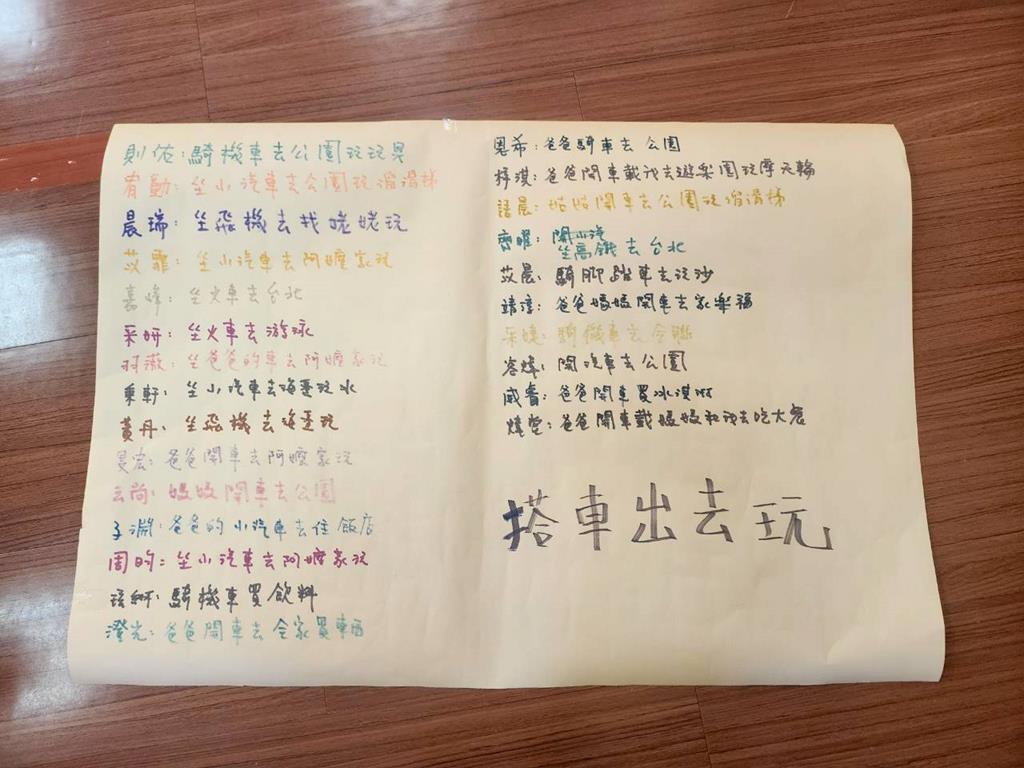 則佑:騎機車去公園玩玩具
宥勳:坐小汽車去公園玩溜滑梯
晨瑞:坐飛機去找姥姥玩
苡霏:坐小汽車去阿嬤家玩
嘉烽:坐火車去台北
采妍:坐火車去游泳
羽薇:坐爸爸的車去阿嬤家玩
秉軒:坐小汽車去海邊玩水
黃丹:坐飛機去海邊玩
昊宏:爸爸開車去阿嬤家玩
云尚:媽媽開車去公園
子淵:爸爸的小汽車去住飯店
周昀:坐小汽車去阿嬤家玩
騎機車買飲料
澄光:爸爸開車去全家買東西
恩希:爸爸騎車去公園
梓淇:爸爸開車載我去遊樂園玩摩天輪
語晨:姑姑開車去公園玩溜滑梯
齊曜:開小汽
坐高鐵去台北
苡晨:騎腳踏車去玩沙
靖淳:爸爸媽媽開車去家樂福
采婕:騎機車去全聯
開汽車去公園
威睿:爸爸開車買冰淇淋
爸爸開車載媽媽和我去吃大餐
搭車出去玩